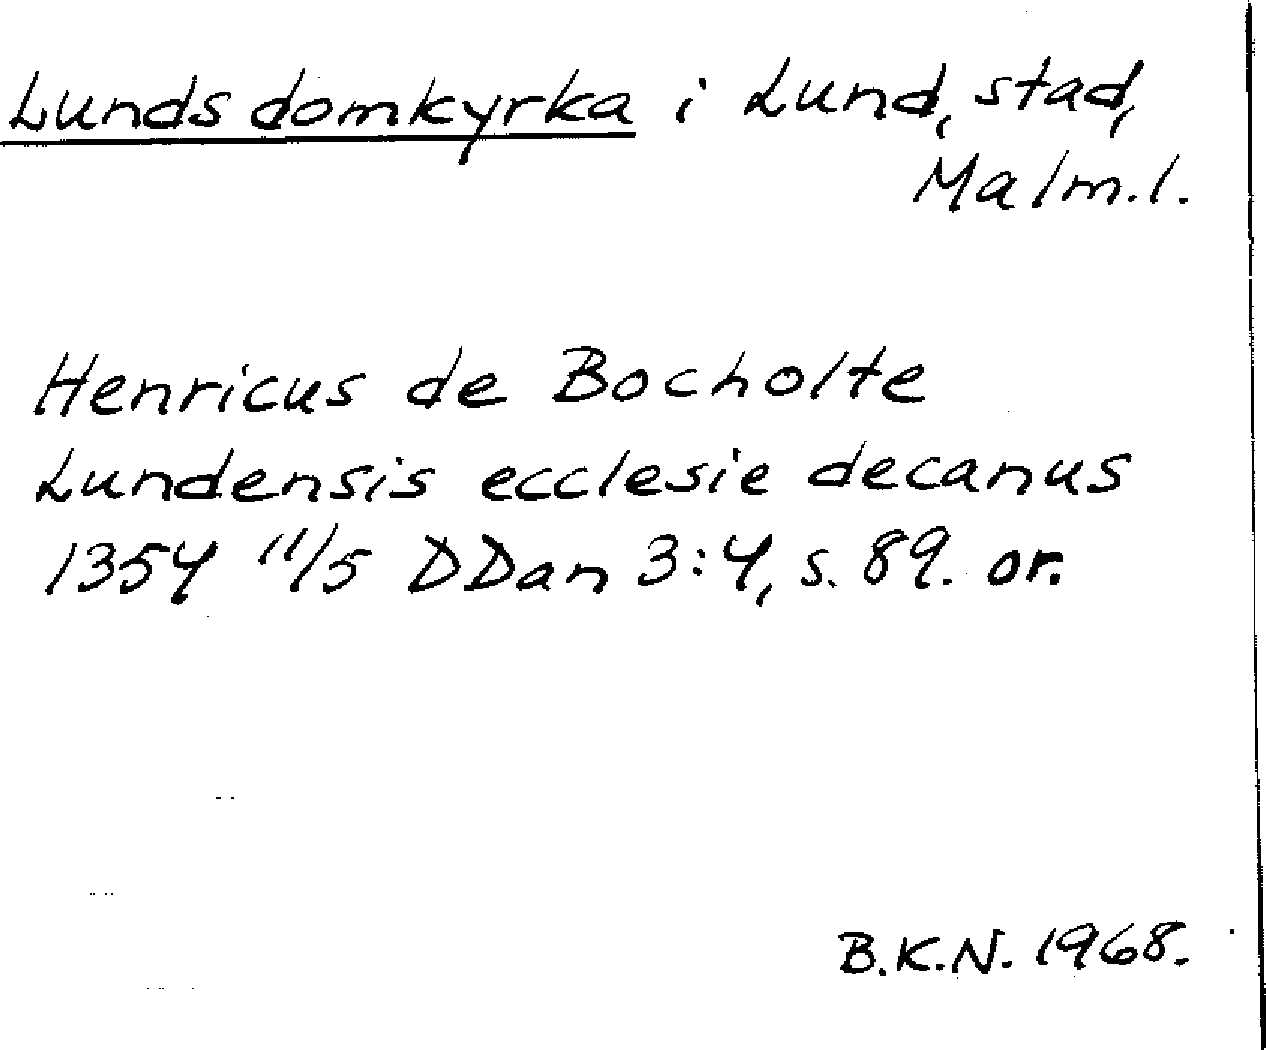 Lunds domkyrka i Lund, stad,
Malm.l.
Henricus de Bocholte
Lundensis ecclesie decanus
1354 11/5 DDan 3:4, s. 89. or.
B.K.N. 1968.